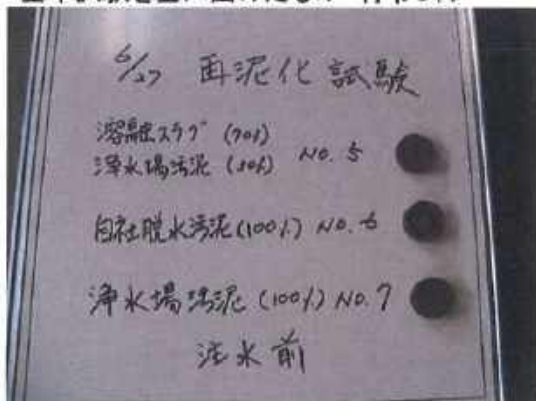 6/27 再泥化試験
溶融スラグ (70%)
浄水場汚泥 (30%) NO. 5
自社脱水汚泥 (100%) NO. 6
浄水場汚泥 (100%) NO. 7
注水前